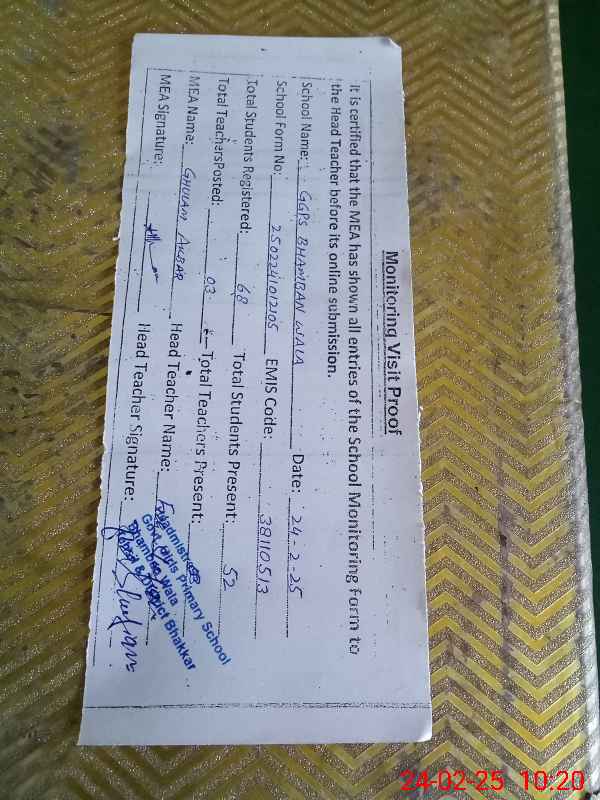 Monitoring Visit Proof
It is certified that the MEA has shown all entries of the School Monitoring form to
the Head Teacher before its online submission.
School Name: GGPS BHAMBAN WALA Date: 24-2-25
School Form No: 2502241012105 EMIS Code: 38110513
Total Students Registered: 68 Total Students Present: 52
Total Teachers Posted: 03 Total Teachers Present:
MEA Name: GHULAM AKBAR Head Teacher Name:
MEA Signature: Head Teacher Signature:
Headmistress
Govt. Girls Primary School
Bhamban Wala
District Bhakkar
24-02-25 10:20